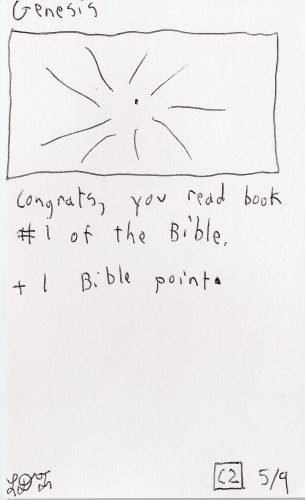 Genesis
Congrats, you read book
#1 of the Bible.
+1 Bible point.
C2 5/9